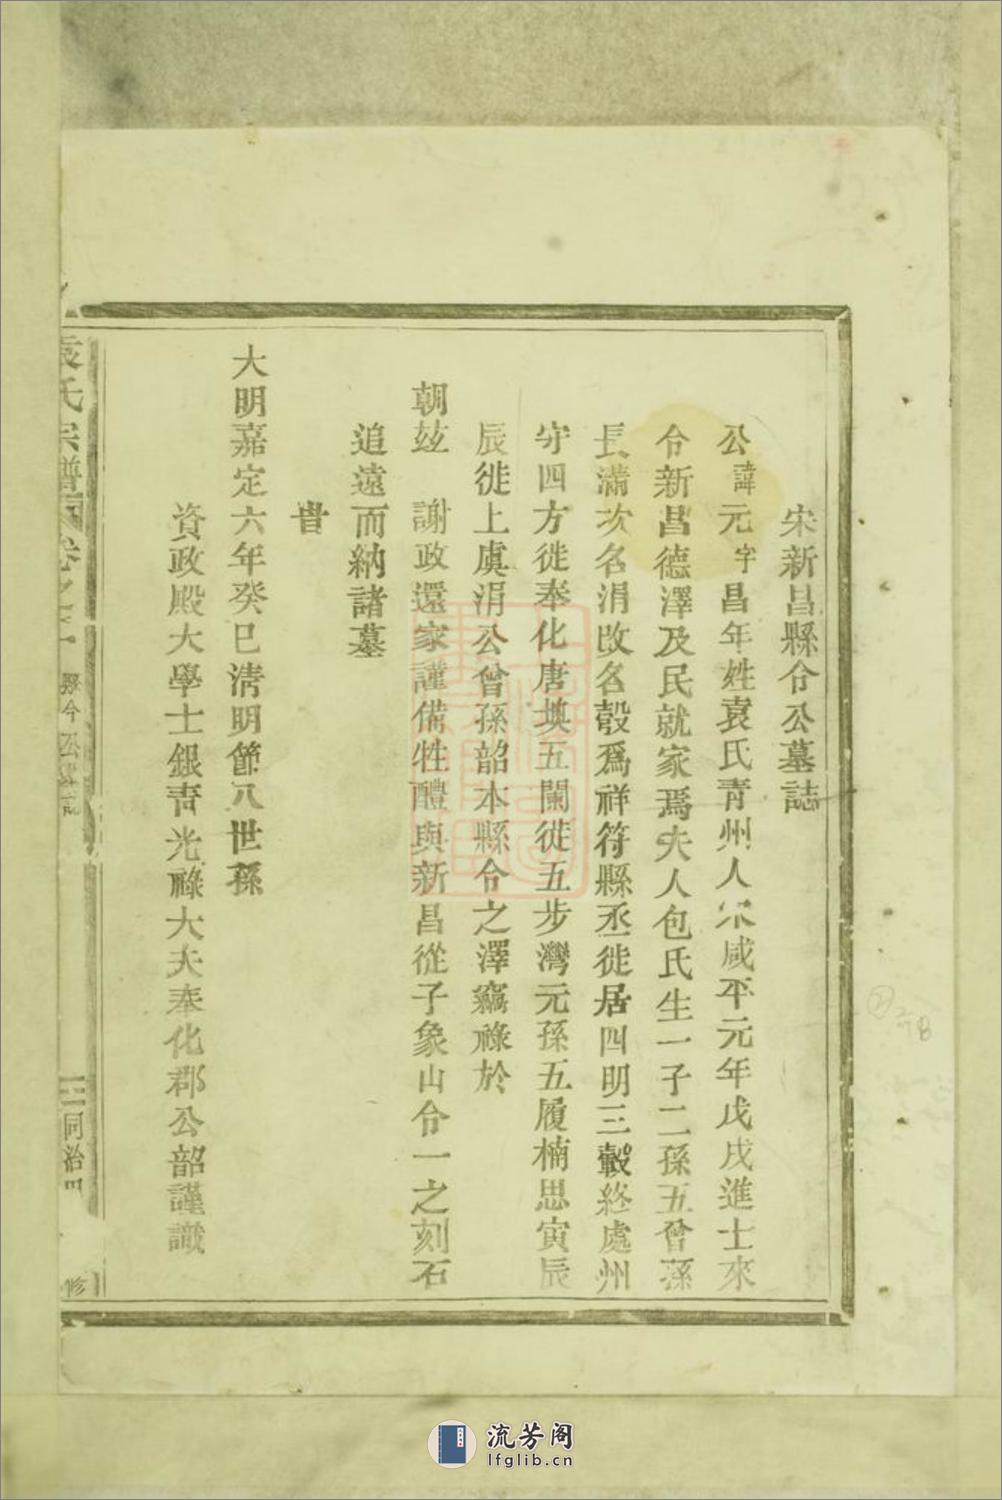 宋新昌縣令公墓誌
公諱元字昌年姓袁氏青州人宋咸平元年戊戌進士來
令新昌德澤及民就家焉夫人包氏生一子二孫五曾孫
長滿次名涓改名轂爲祥符縣丞徙居四明三轂終處州
守四方徙奉化唐墺五闌徙五步灣元孫五履楠思寅辰
辰徙上虞涓公曾孫韶本縣令之澤竊祿於
朝玆 謝政還家謹備牲醴與新昌從子象山令一之刻石
追遠而納諸墓
旹
大明嘉定六年癸巳淸明節八世孫
資政殿大學士銀靑光祿大夫奉化郡公韶謹識
袁氏宗譜 卷之 縣令公 三 同治 修
流芳阁
lfglib.cn